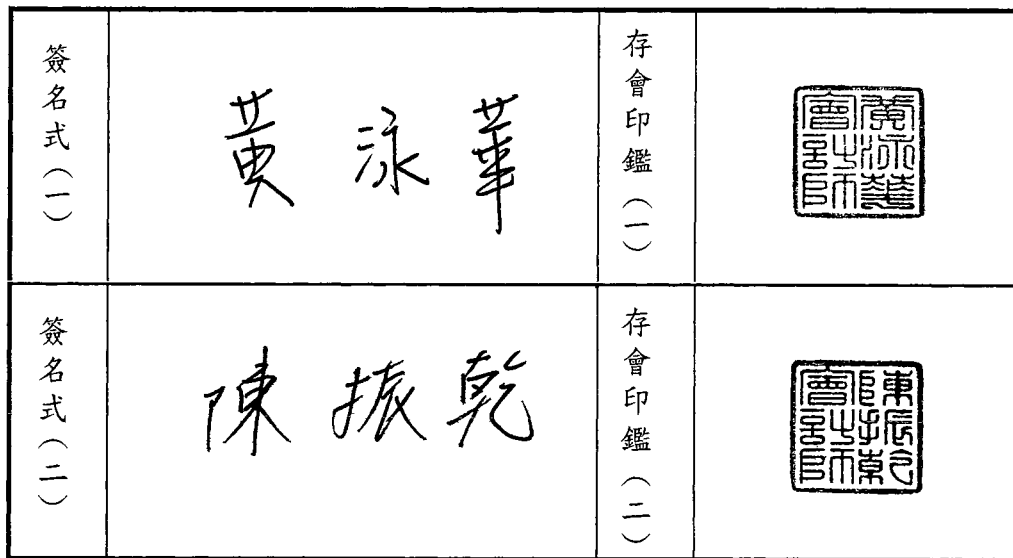 簽名式(一)
黃泳華
存會印鑑(一)
黃泳華會計師
簽名式(二)
陳振乾
存會印鑑(二)
陳振乾會計師